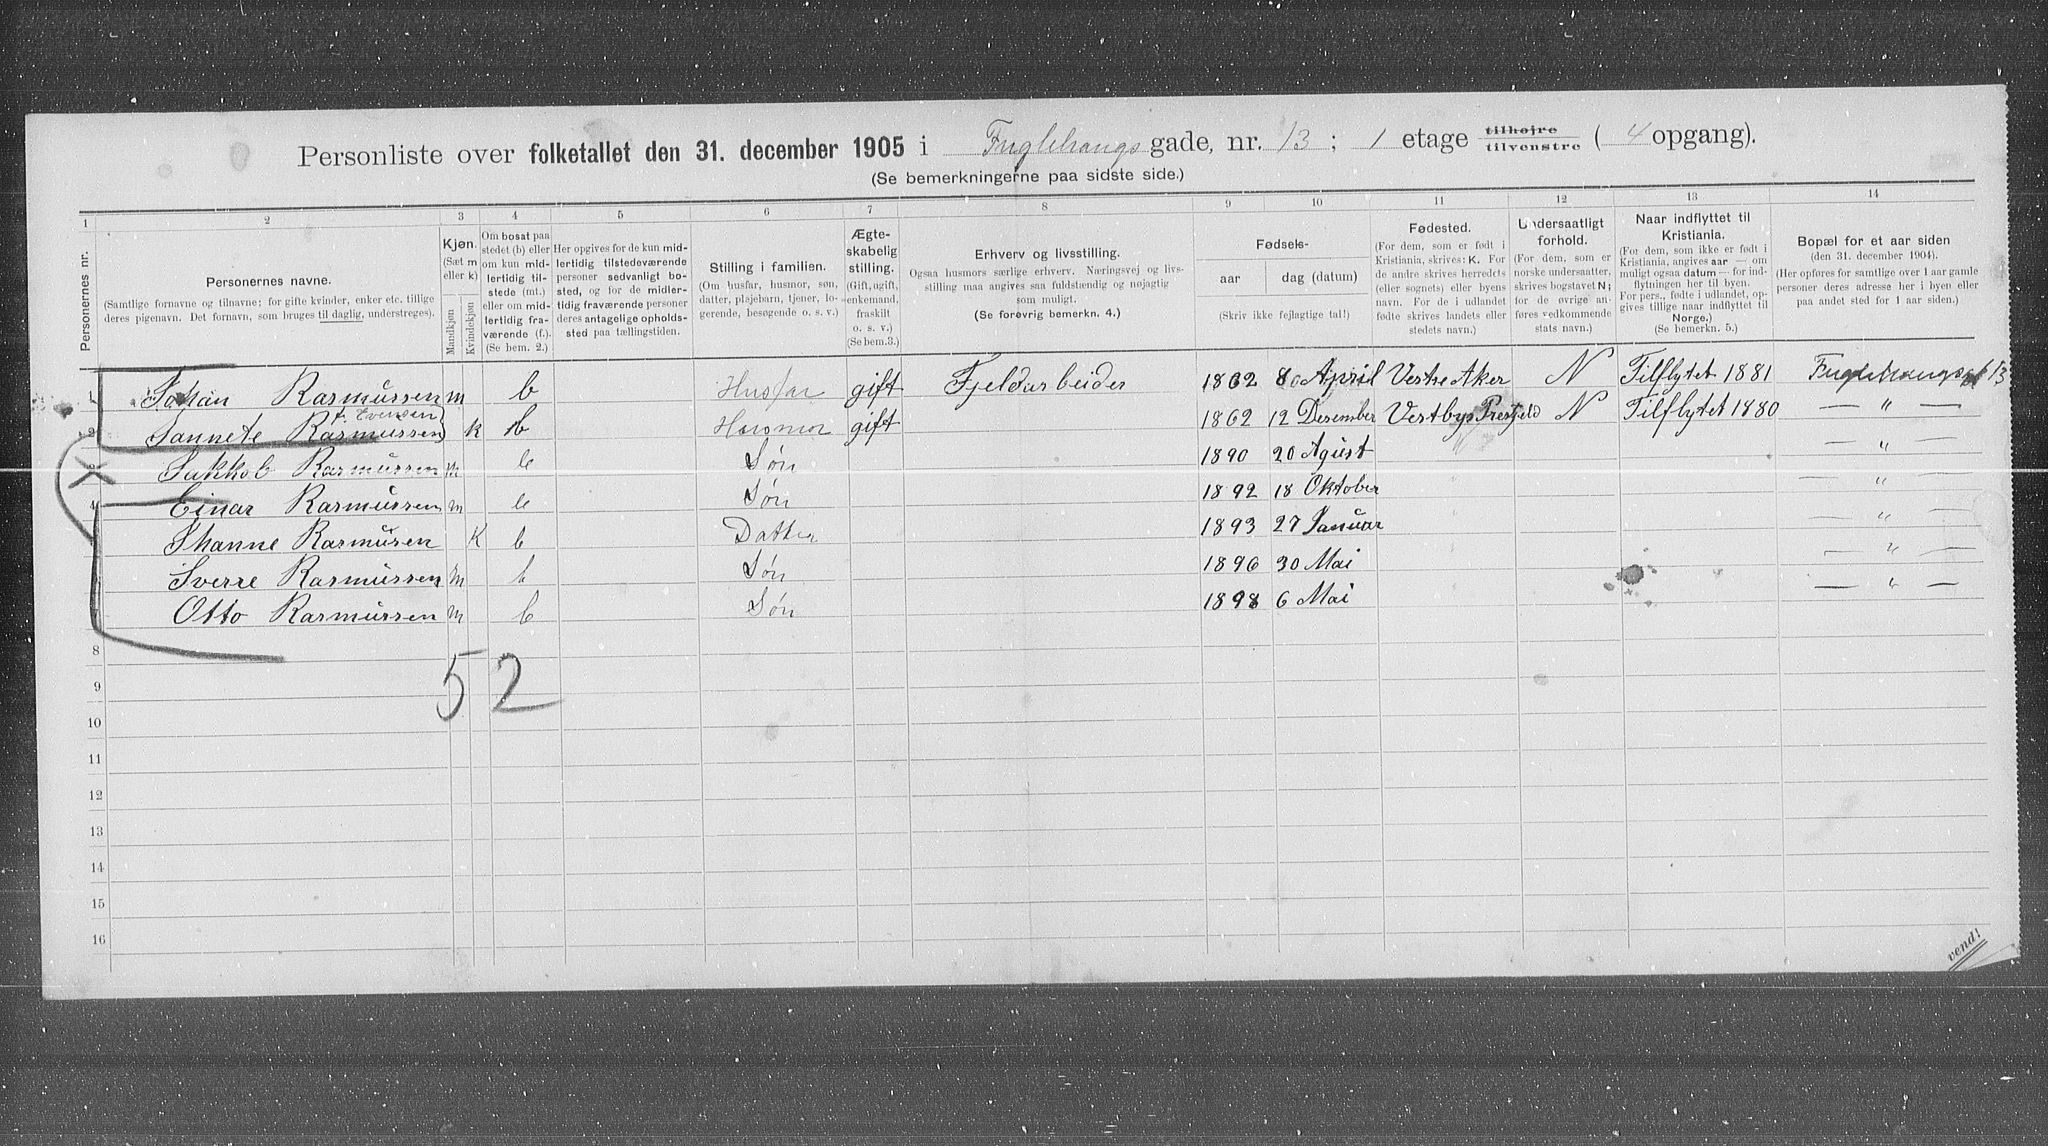 Personliste over folketallet den 31. december 1905 i Fuglehaugs gade, nr. 13 ; 1 etage tilhøjre tilvenstre ( 4 opgang).
(Se bemerkningerne paa sidste side.)
1 2 3 4 5 6 7 8 9 10 11 12 13 14
Personernes nr.
Personernes navne.
(Samtlige fornavne og tilnavne; for gifte kvinder, enker etc. tillige deres pigenavn. Det fornavn, som bruges til daglig, understreges).
Kjøn. (Sæt m eller k) Mandkjøn Kvindekjøn
Om bosat paa stedet (b) eller om kun midlertidig tilstede (mt.) eller om midlertidig fraværende (f.). (Se bem. 2.)
Her opgives for de kun midlertidig tilstedeværende personer sedvanligt bosted, og for de midlertidig fraværende personer deres antagelige opholdssted paa tællingstiden.
Stilling i familien.
(Om husfar, husmor, søn, datter, plejebarn, tjener, logerende, besøgende o. s. v.)
Ægteskabelig stilling. (Gift, ugift, enkemand, fraskilt o. s. v.) (Se bem.3.)
Erhverv og livsstilling.
Ogsaa husmors særlige erhverv. Næringsvej og livsstilling maa angives saa fuldstændig og nøjagtig som muligt.
(Se forøvrig bemerkn. 4.)
Fødsels-
aar dag (datum)
(Skriv ikke fejlagtige tal!)
Fødested.
(For dem, som er født i Kristiania, skrives: K. For de andre skrives herredets (eller sognets) eller byens navn. For de i udlandet fødte skrives landets eller stedets navn.)
Undersaatligt forhold.
(For dem, som er norske undersaatter, skrives bogstavet N; for de øvrige anføres vedkommende stats navn.)
Naar indflyttet til Kristiania.
(For dem, som ikke er født i Kristiania, angives aar — om muligt ogsaa datum — for indflytningen her til byen. For pers., fødte i udlandet, opgives tillige naar indflyttet til Norge.)
(Se bemerkn. 5.)
Bopæl for et aar siden
(den 31. december 1904).
(Her opføres for samtlige over 1 aar gamle personer deres adresse her i byen eller paa andet sted for 1 aar siden.)
1 Johan Rasmussen m b Husfar gift Fjeldarbeider 1862 8 April Vestre Aker N Tilflytet 1881 Fuglehaugsgt 13
f. Evensen
2 Jannete Rasmussen k b Husmor gift 1862 12 Desember Vestby N Tilflytet 1880 — " —
Jakkob Rasmussen m b Søn 1890 20 Agust — " —
4 Einar Rasmussen m b Søn 1892 18 Oktober — " —
Jhanne Rasmusen K b Datter 1893 27 Januar — " —
Sverre Rasmussen m b Søn 1896 30 Mai — " —
Otto Rasmussen m b Søn 1898 6 Mai — " —
8
5 2
9
10
11
12
13
14
15
16
vend!